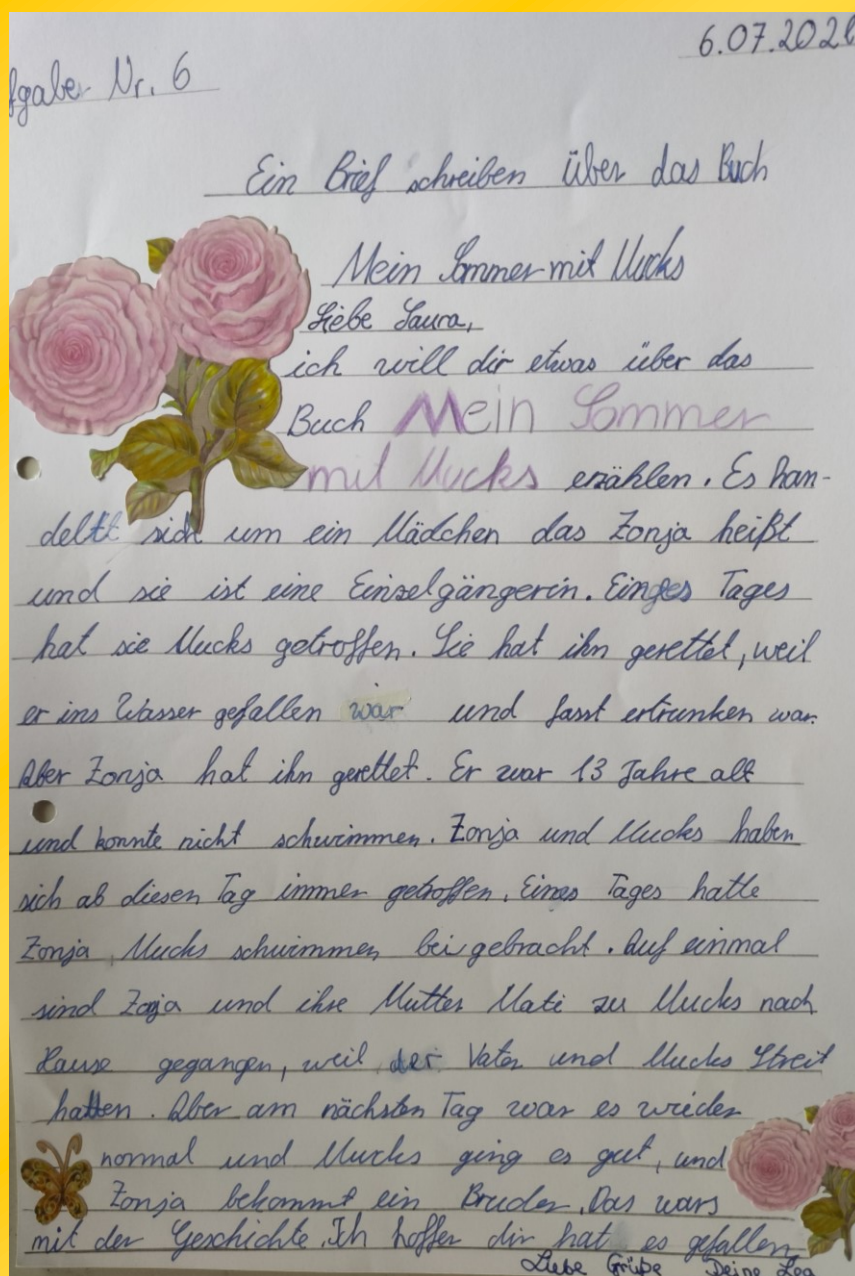 6.07.202
fgabe Nr. 6
Ein Brief schreiben über das Buch
Mein Sommer mit Mucks
Liebe Laura,
ich will dir etwas über das
Buch Mein Sommer
mit Mucks erzählen. Es han-
delt sich um ein Mädchen das Zonja heißt
und sie ist eine Einzelgängerin. Einges Tages
hat sie Mucks getroffen. Sie hat ihn gerettet, weil
er ins Wasser gefallen war und fasst ertrunken war.
Aber Zonja hat ihn gerettet. Er war 13 Jahre alt
und konnte nicht schwimmen. Zonja und Mucks haben
sich ab diesen Tag immer getroffen. Eines Tages hatte
Zonja Mucks schwimmen bei gebracht. Auf einmal
sind Zoja und ihre Mutter Mati zu Mucks nach
Hause gegangen, weil der Vater und Mucks Streit
hatten. Aber am nächsten Tag war es wieder
normal und Mucks ging es gut, und
Zonja bekommt ein Bruder. Das wars
mit der Geschichte. Ich hoffe dir hat es gefallen.
Liebe Grüße Deine Lea